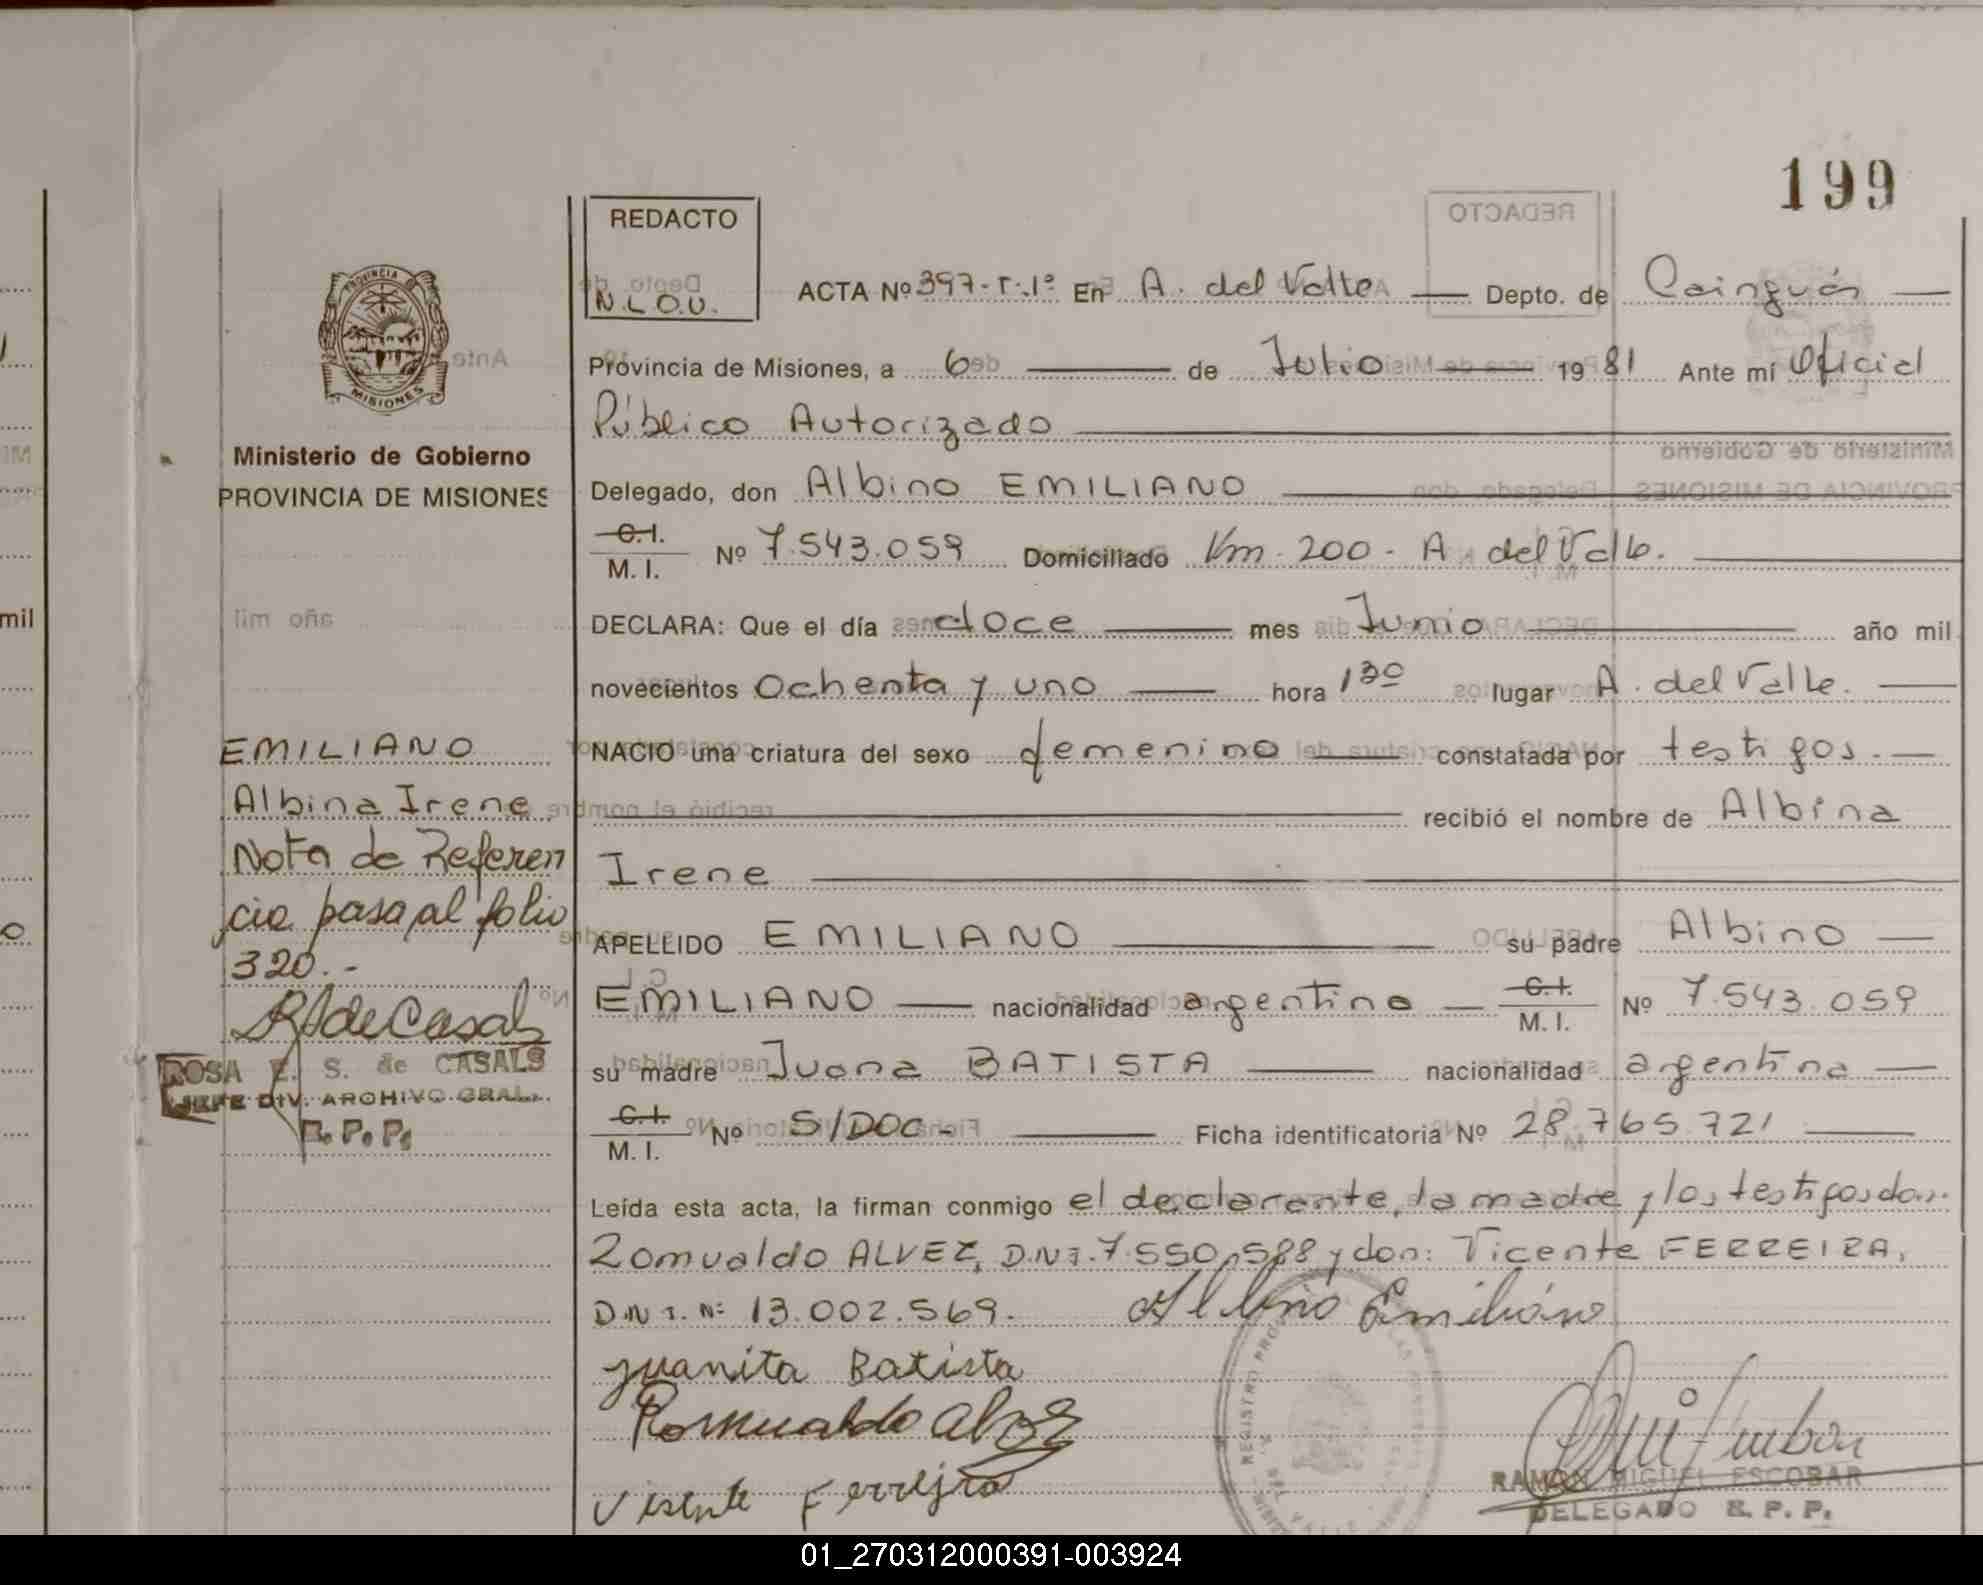 199
REDACTO
N.L.O.U.
ACTA Nº 397-T-1º En A. del Valle Depto. de Cainguás
Provincia de Misiones, a 6 de Julio 1981 Ante mí Oficial
Público Autorizado
Ministerio de Gobierno
PROVINCIA DE MISIONES
Delegado, don Albino EMILIANO
C.I.
M. I. Nº 7.543.059 Domiciliado Km. 200 - A del Valle.
DECLARA: Que el día doce mes Junio año mil
novecientos Ochenta y uno hora 1 30 lugar A. del Valle.
NACIO una criatura del sexo femenino constatada por testigos.
recibió el nombre de Albina
Irene
APELLIDO EMILIANO su padre Albino
EMILIANO nacionalidad argentina C.I.
M. I. Nº 7.543.059
su madre Juana BATISTA nacionalidad argentina
C.I.
M. I. Nº S/DOC- Ficha identificatoria Nº 28.765.721
Leída esta acta, la firman conmigo el declarante, la madre y los testigos don:
Romualdo ALVEZ, D.N.I. 7.550.588 y don: Vicente FERREIRA,
D.N.I. Nº 13.002.569.
Albino Emiliáno
juanita Batista
Romualdo alvez
Visente Ferrejra
EMILIANO
Albina Irene
Nota de Referen
cia pasa al folio
320.-
RSdeCasals
ROSA E. S. de CASALS
JEFE DIV. ARCHIVO GRAL.
R. P. P.
RAMON MIGUEL ESCOBAR
DELEGADO R. P. P.
01_270312000391-003924